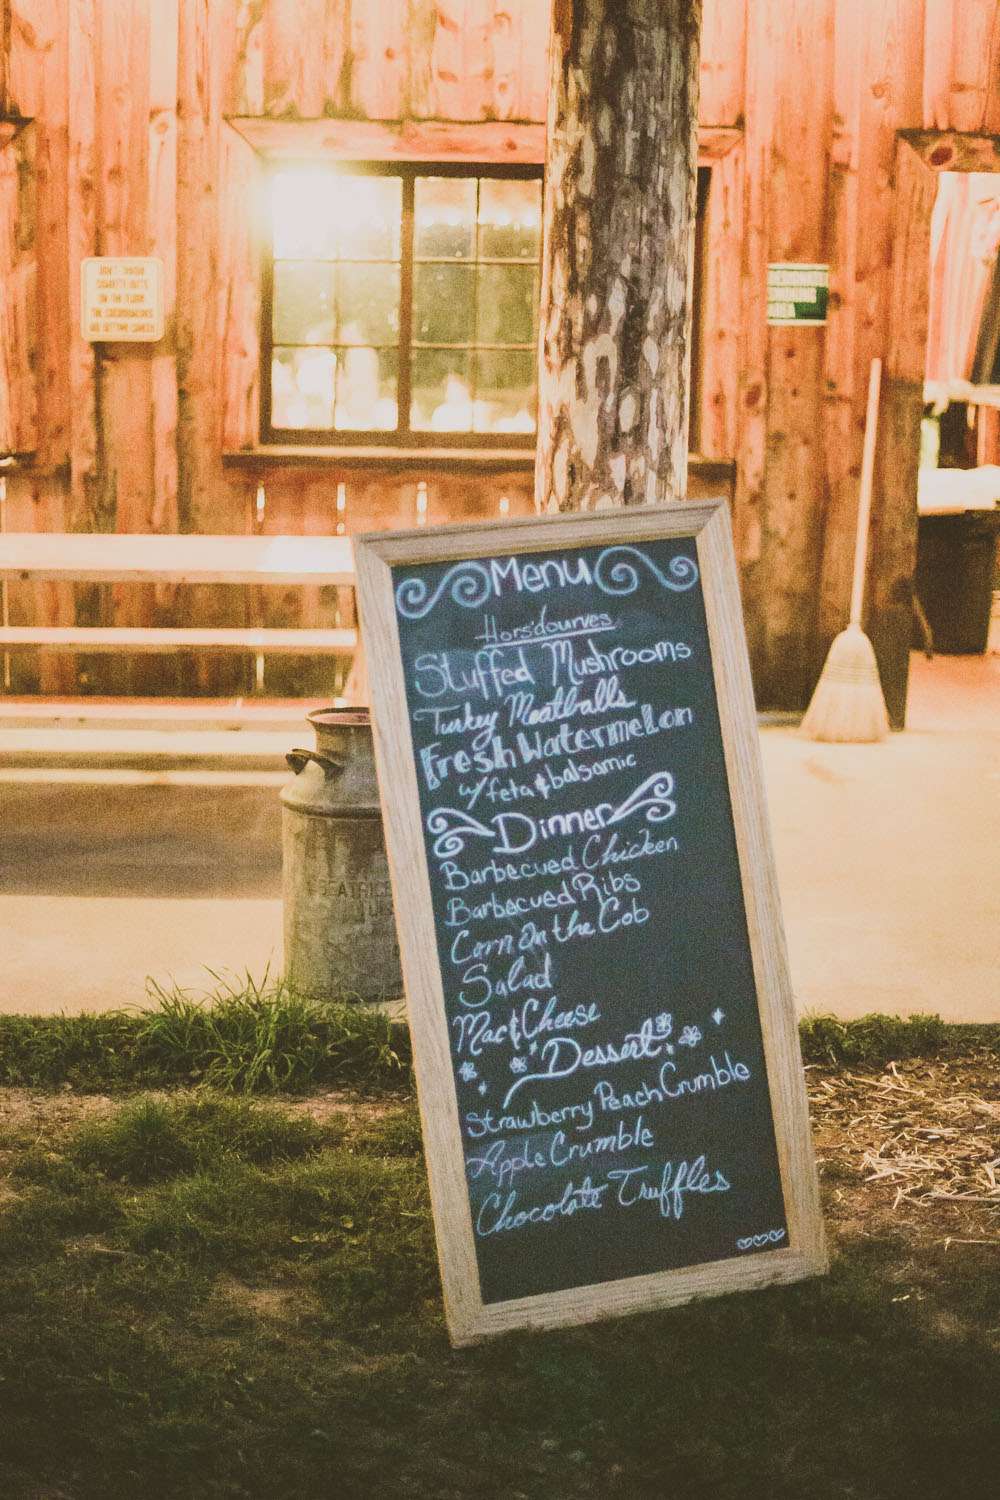 DON'T THROW
CIGARETTE BUTTS
ON THE FLOOR
THE COCKROACHES
ARE GETTING CANCER
Menu
Horsdourves
Stuffed Mushrooms
Turkey Meatballs
Fresh Watermelon
w/ feta & balsamic
Dinner
Barbecued Chicken
Barbecued Ribs
Corn On the Cob
Salad
Mac & Cheese
Dessert
Strawberry Peach Crumble
Apple Crumble
Chocolate Truffles